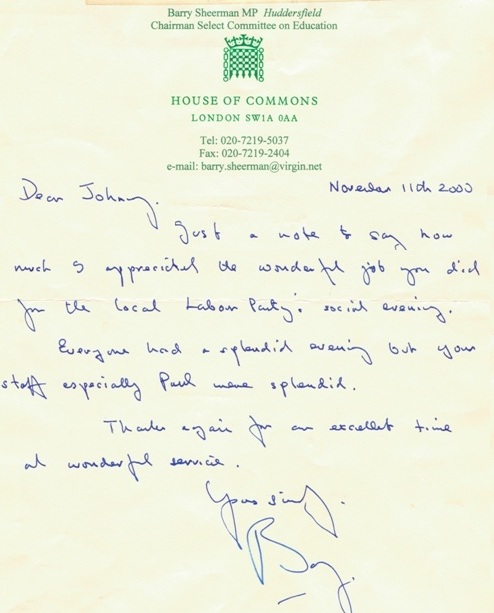 Barry Sheerman MP Huddersfield
Chairman Select Committee on Education
HOUSE OF COMMONS
LONDON SW1A 0AA
Tel: 020-7219-5037
Fax: 020-7219-2404
e-mail: barry.sheerman@virgin.net
November 11th 2000
Dear Johnny,
Just a note to say how
much I appreciated the wonderful job you did
for the local Labour Party's social evening.
Everyone had a splendid evening but your
staff especially Paul were splendid.
Thanks again for an excellent time
and wonderful service.
Yours sincerely,
Barry